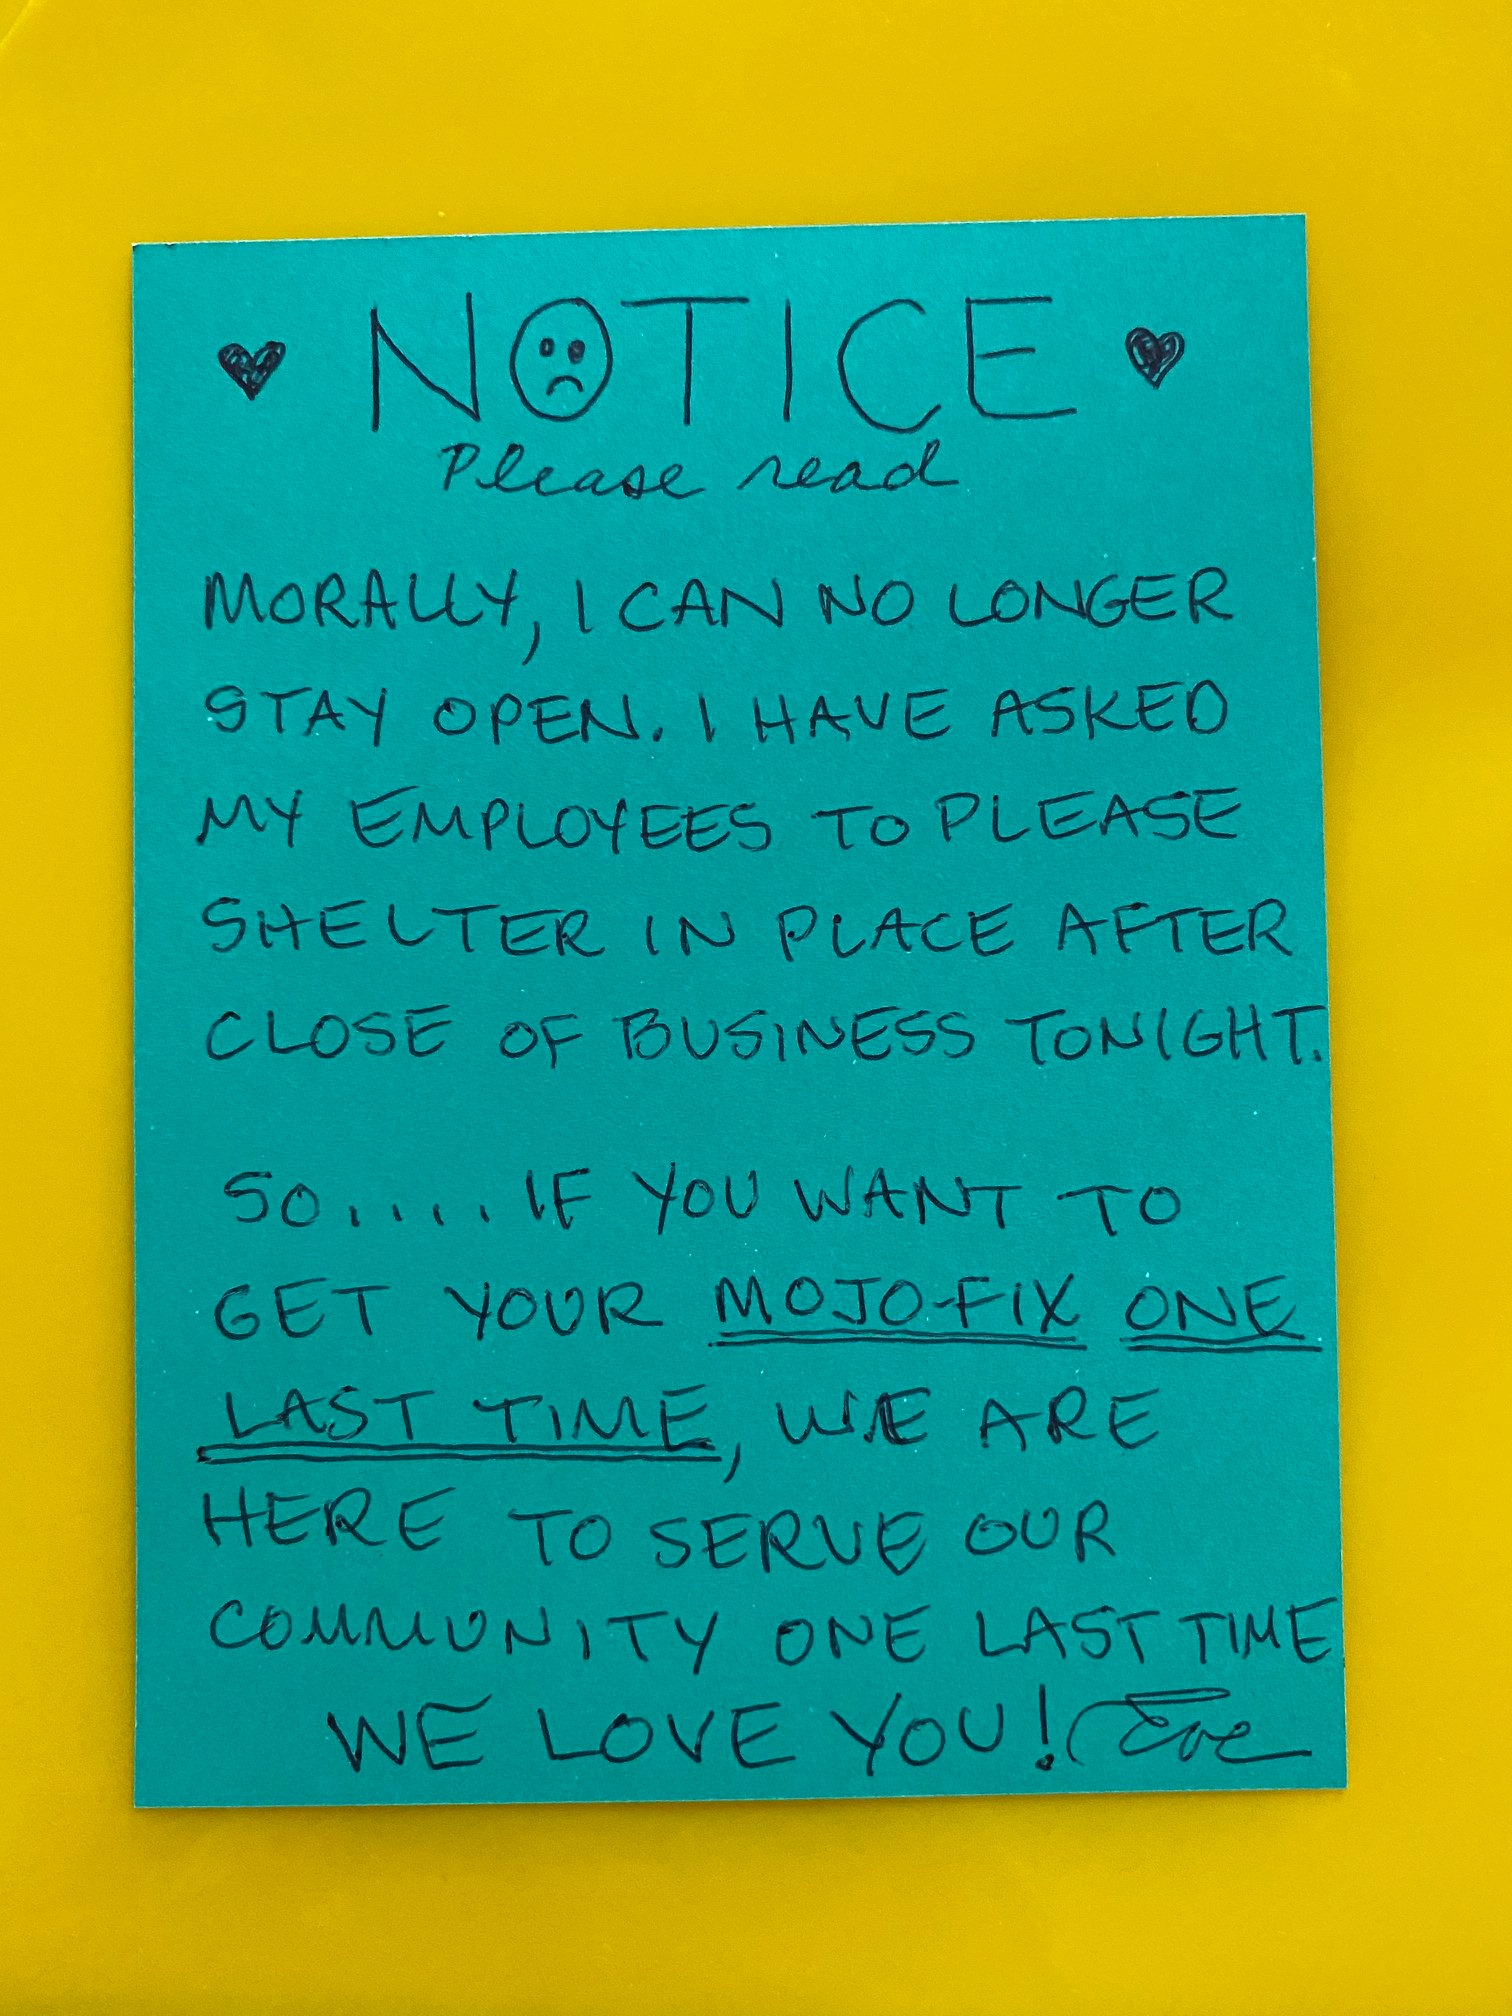 NOTICE
Please read
MORALLY, I CAN NO LONGER
STAY OPEN. I HAVE ASKED
MY EMPLOYEES TO PLEASE
SHELTER IN PLACE AFTER
CLOSE OF BUSINESS TONIGHT.
SO..... IF YOU WANT TO
GET YOUR MOJO-FIX ONE
LAST TIME, WE ARE
HERE TO SERVE OUR
COMMUNITY ONE LAST TIME
WE LOVE YOU! Eve